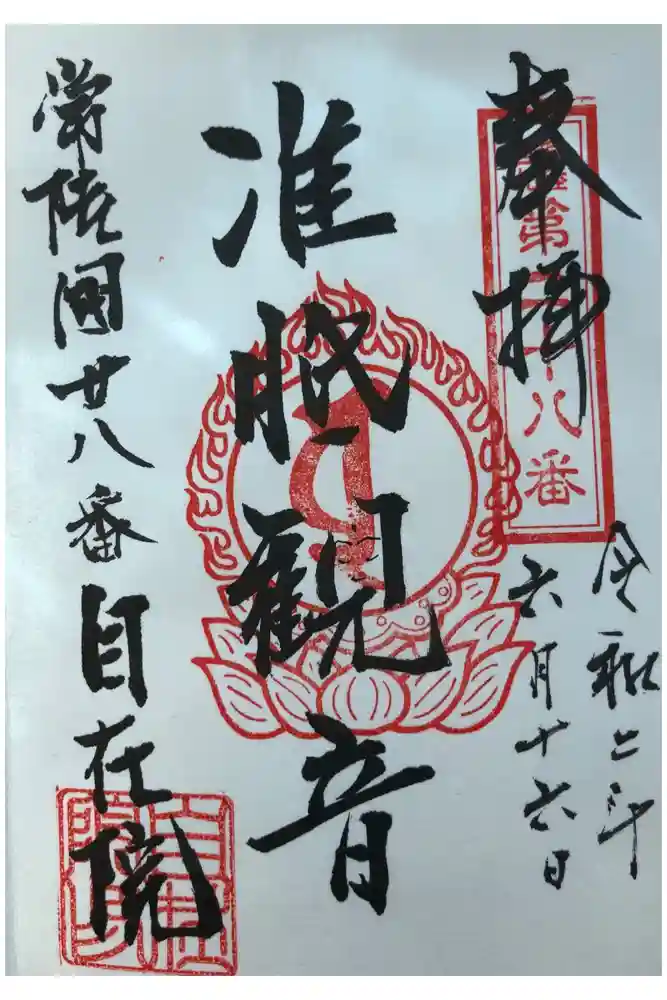 奉拝
第二十八番
令和二年
六月十六日
准胝観音
常陸國廿八番自在院